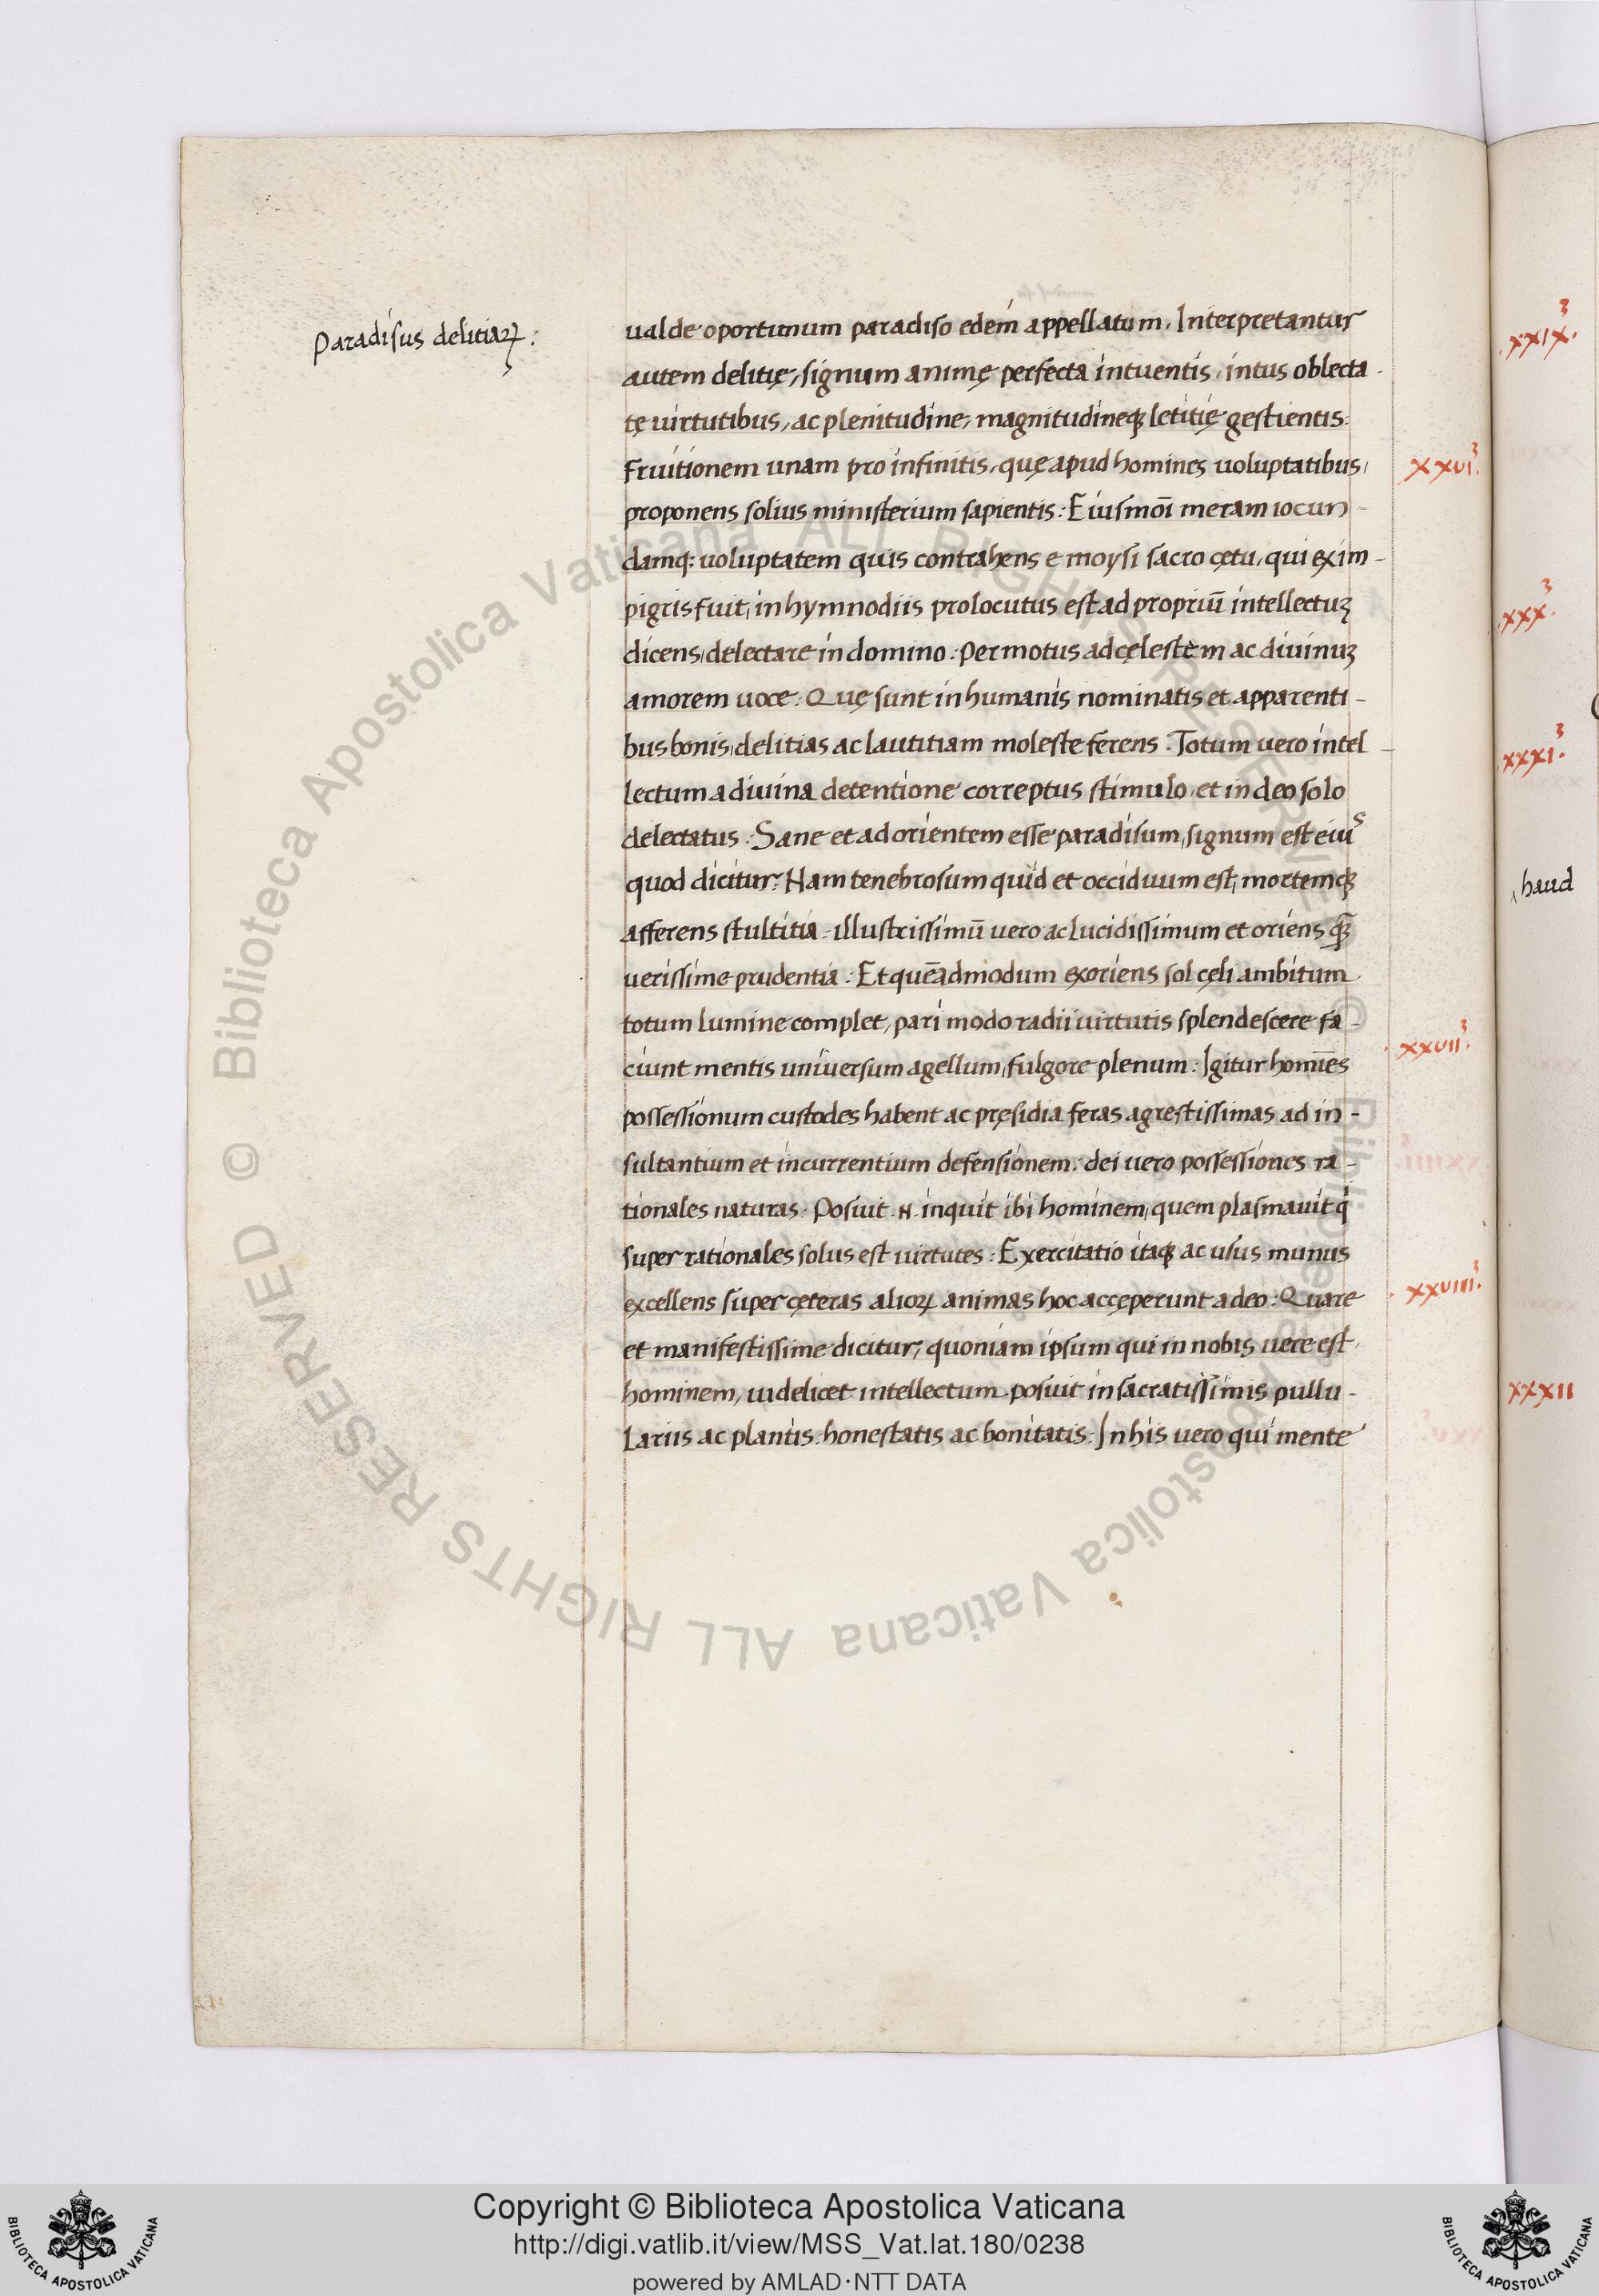 Paradisus delitiaꝝ:
ualde oportunum paradiso edem appellatum, Interpretantur
autem delitię, signum animę perfecta intuentis, intus oblecta-
tę uirtutibus, ac plenitudine, magnitudineqꝫ letitię gestientis:
Fruitionem unam pro infinitis, quę apud homines uoluptatibus,
XXVI.
proponens solius ministerium sapientis: Eiusmōi meram iocun-
damqꝫ uoluptatem quis contrahens e moysi sacro cętu, qui ex im-
pigris fuit, in hymnodiis prolocutus est ad propriū intellectuꝫ
dicens, delectare in domino: Permotus ad cęlestem ac diuinuꝫ
amorem uoce: Quę sunt in humanis nominatis et apparenti-
bus bonis, delitias ac lautitiam moleste ferens. Totum uero intel-
lectum a diuina detentione correptus stimulo, et in deo solo
delectatus: Sane et ad orientem esse paradisum, signum est eius
quod dicitur: Nam tenebrosum quid et occiduum est, mortemqꝫ
afferens stultitia: illustrissimū uero ac lucidissimum et oriens
uerissime prudentia: Et quēadmodum exoriens sol cęli ambitum
totum lumine complet, pari modo radii uirtutis splendescere fa-
XXVII.
ciunt mentis uniuersum agellum, fulgore plenum: Igitur homīes
possessionum custodes habent ac pręsidia feras agrestissimas ad in-
sultantium et incurrentium defensionem: dei uero possessiones ra-
tionales naturas. Posuit .N. inquit ibi hominem, quem plasmauit q
super rationales solus est uirtutes: Exercitatio itaqꝫ ac usus munus
excellens super cęteras alioꝝ animas hoc accęperunt a deo: Quare
XXVIIII.
et manifestissime dicitur, quoniam ipsum qui in nobis uere est,
hominem, uidelicet intellectum posuit in sacratissimis pullu-
lariis ac plantis: honestatis ac bonitatis: In his uero qui mente
XXIX.
XXX.
XXXI.
haud
XXXII
© Biblioteca Apostolica Vaticana ALL RIGHTS RESERVED © Biblioteca Apostolica Vaticana ALL RIGHTS RESERVED
Copyright © Biblioteca Apostolica Vaticana
http://digi.vatlib.it/view/MSS_Vat.lat.180/0238
powered by AMLAD·NTT DATA
BIBLIOTECA APOSTOLICA VATICANA
BIBLIOTECA APOSTOLICA VATICANA